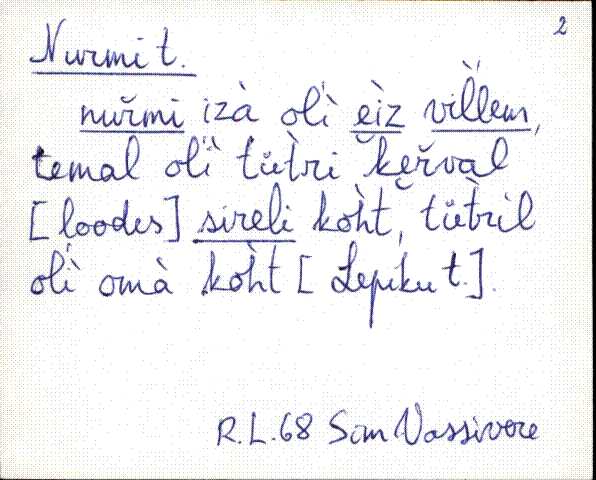 2
Nurmi t.
nuřmi izà oĺi èiz villem,
temal oĺi tütri keřval
[loodes] sireli koht, tütril
oĺi omà koht [Lepiku t.].
R.L.68 Sim Vassivere